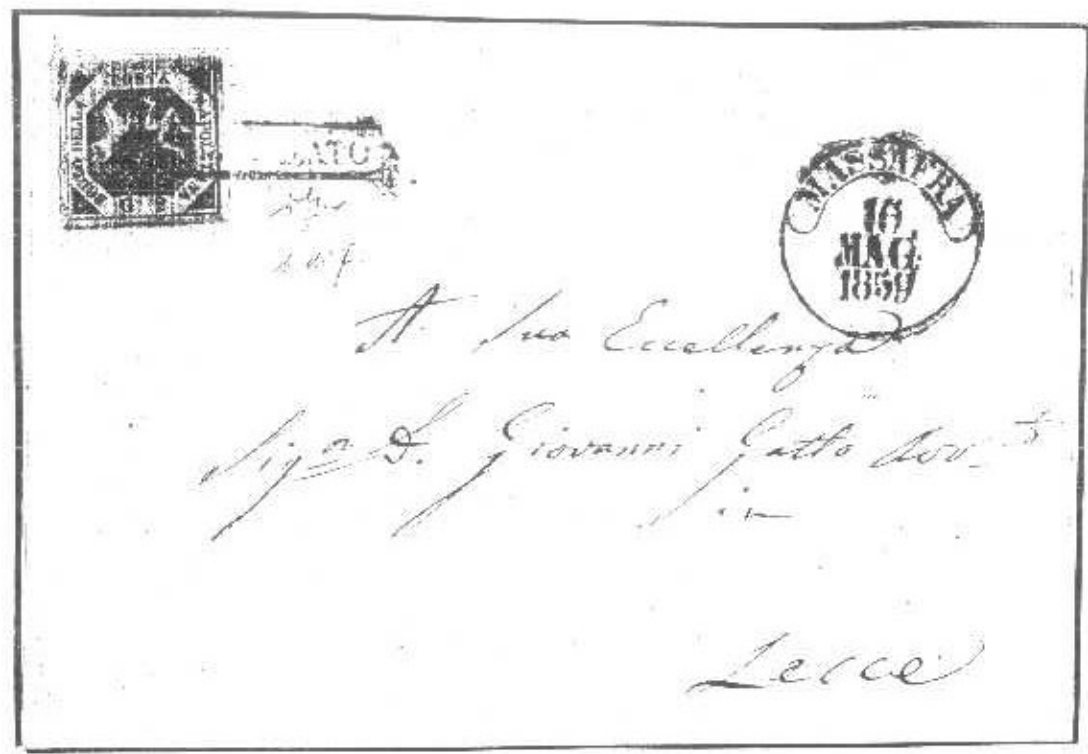 POSTA
BOLLO DELLA
NAPOLETANA
G. 2
ATO
MASSAFRA
16
MAG.
1859
A Sua Eccellenza
Sig.r D. Giovanni Gatto Avv.to
in
Lecce